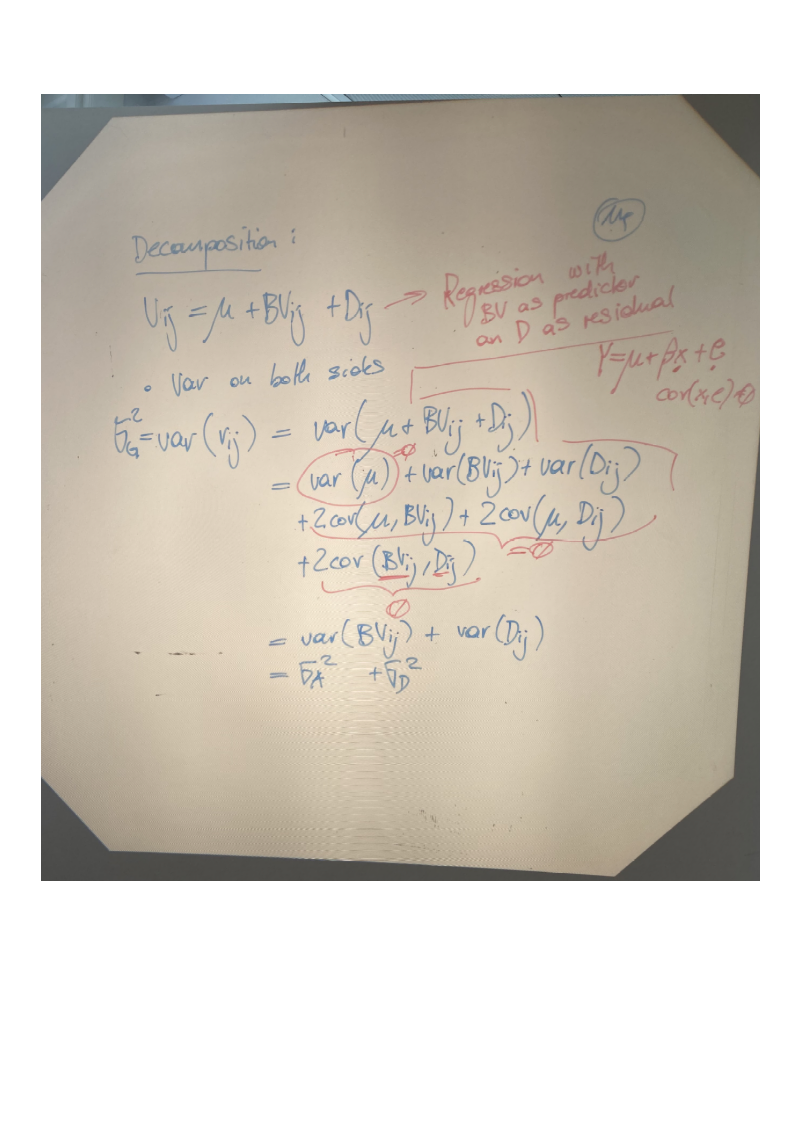 Decomposition :
V_ij = μ + BV_ij + D_ij → Regression with
BV as predictor
an D as residual
Y = μ + βx + e
cor(x,e) = ∅
• Var on both sides
σ_G² = var(V_ij) = var(μ + BV_ij + D_ij)
= var(μ) = ∅ + var(BV_ij) + var(D_ij)
+ 2cov(μ, BV_ij) + 2cov(μ, D_ij)
= ∅
+ 2cov(BV_ij, D_ij)
∅
= var(BV_ij) + var(D_ij)
= σ_A² + σ_D²